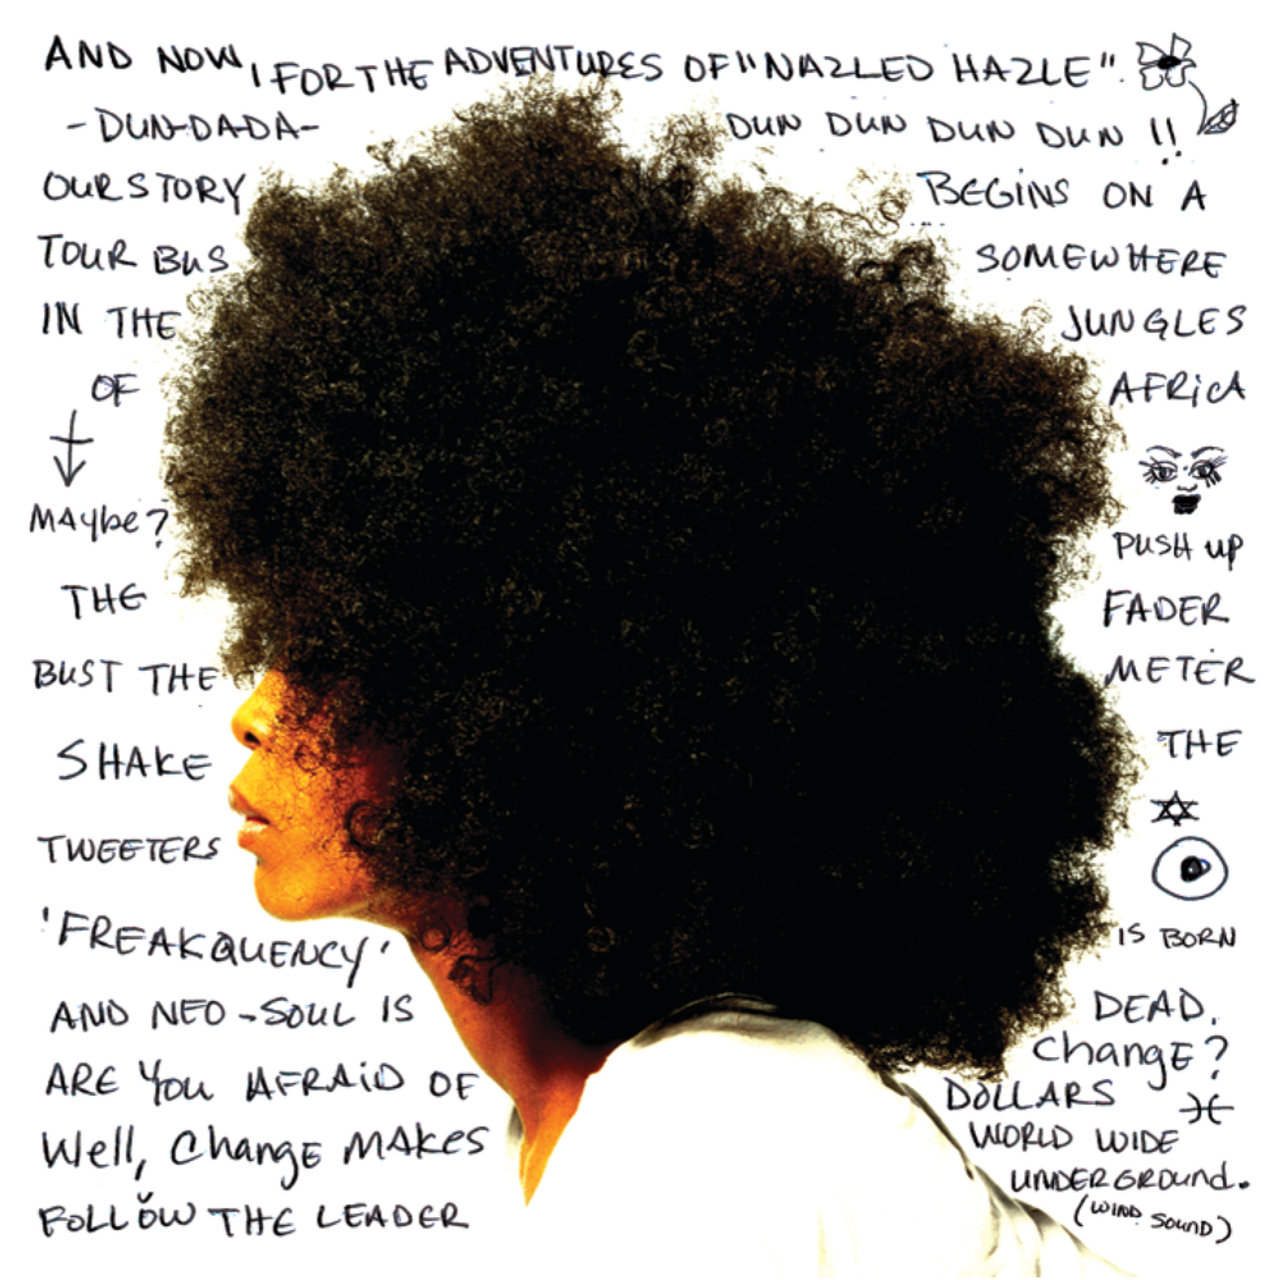 AND NOW, FOR THE ADVENTURES OF "NAZLED HAZLE".
-DUN-DA-DA- DUN DUN DUN DUN !!
OUR STORY BEGINS ON A
TOUR BUS SOMEWHERE
IN THE JUNGLES
OF AFRICA
MAYbe?
THE PUSH UP
FADER
BUST THE METER
SHAKE THE
TWEETERS
'FREAKQUENCY' IS BORN
AND NEO-SOUL IS DEAD.
ARE YOU AFRAID OF change?
Well, Change MAKES DOLLARS
WORLD WIDE
FOLLOW THE LEADER UNDERGROUND.
(WIND SOUND)